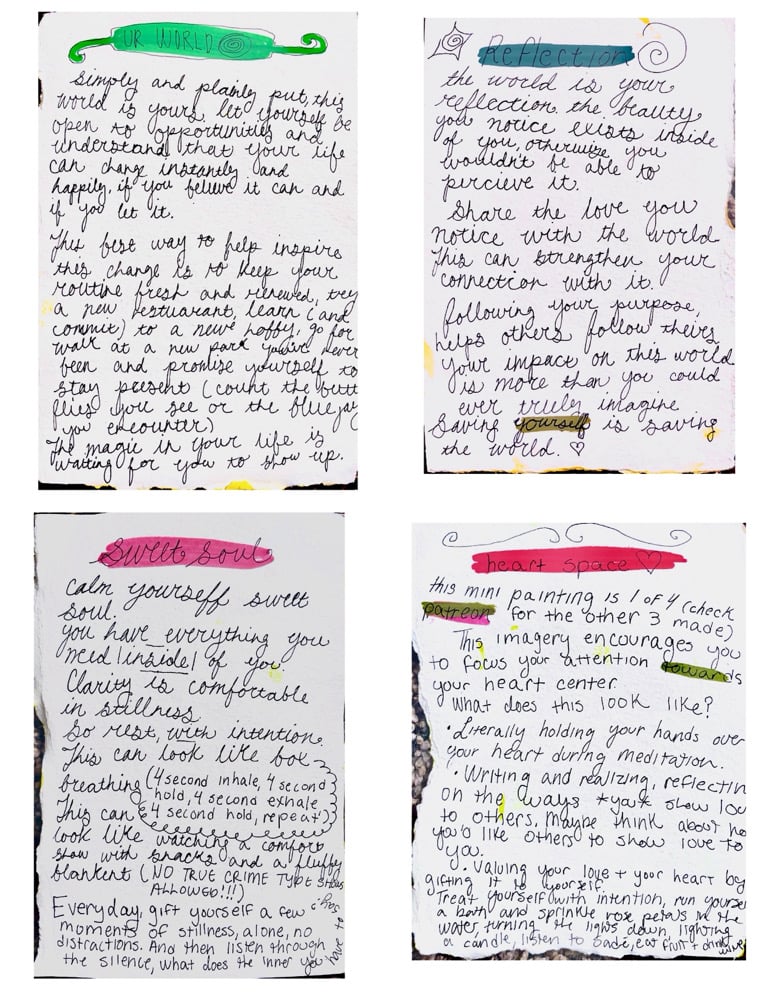 UR WORLD
Simply and plainly put, this
world is yours. let yourself be
open to opportunities and
understand that your life
can change instantly and
happily, if you believe it can and
if you let it.
This best way to help inspire
this change is to keep your
routine fresh and renewed, try
a new restuarant, learn (and
commit) to a newe hobby, go for
walk at a new park you've never
been and promise yourself to
stay present (count the butt
flies you see or the bluejay
you encounter)
The magic in your life is
waiting for you to show up.
Reflection
the world is your
reflection. the beauty
you notice exists inside
of you, otherwise you
wouldn't be able to
percieve it.
Share the love you
notice with the world
This can strengthen your
connection with it.
following your purpose,
helps others follow theirs
your impact on this world
is more than you could
ever truly imagine
Saving yourself is saving
the world. ♡
Sweet Soul
calm yourself sweet
soul.
you have everything you
need inside of you.
Clarity is comfortable
in stillness
So rest, with intention.
This can look like box
breathing (4 second inhale, 4 second
hold, 4 second exhale
4 second hold, repeat)
This can
look like watching a comfort
show with snacks and a fluffy
blankent (NO TRUE CRIME TYPE SHOWS
ALLOWED!!!)
Everyday, gift yourself a few
moments of stillness, alone, no
distractions. And then listen through
the silence, what does the inner you
have to say?
heart space ♡
this mini painting is 1 of 4 (check
patreon for the other 3 made)
This imagery encourages you
to focus your attention towards
your heart center.
What does this look like?
· Literally holding your hands over
your heart during meditation.
· Writing and realizing, reflectin
on the ways *you* show lov
to others. Maybe think about ho
you'd like others to show love to
you.
· Valuing your love + your heart by
gifting it to yourself.
Treat yourself with intention, run yourse
a bath and sprinkle rose petals in the
water, turning the lights down, lighting
a candle, listen to Sade, eat fruit + drink
wine